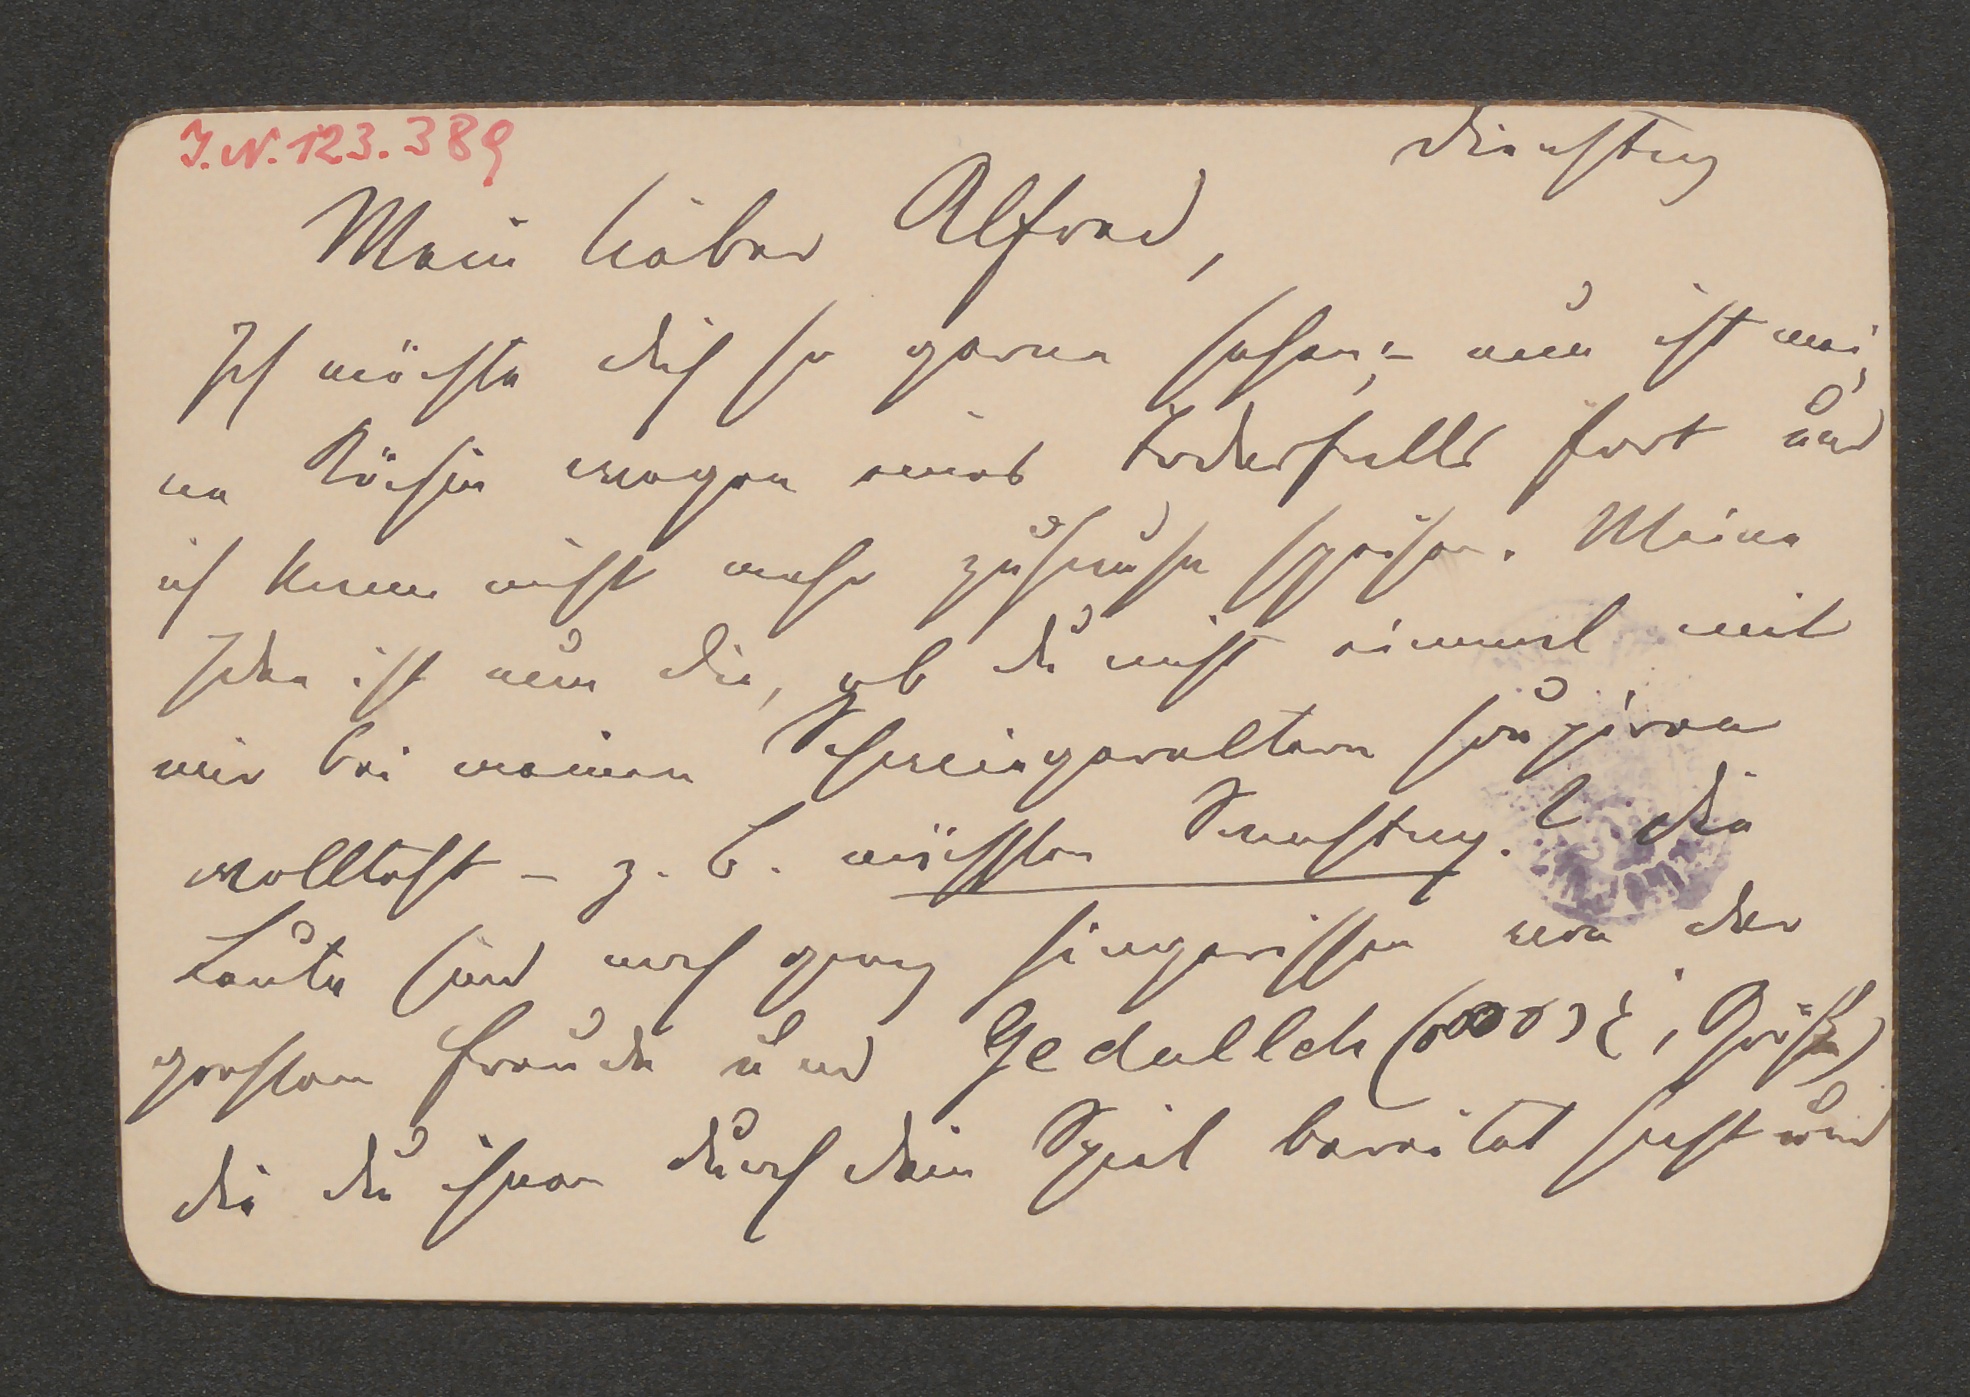 I.N. 123.389
Dienstag
Mein lieber Alfred,
Ich möchte dich so gerne sehen; – nun ist mei-
ne Köchin wegen eines Todesfalls fort und
ich kann nicht mehr zuhause speisen. Meine
Idee ist nun die, ob du nicht einmal mit
mir bei meinen Schwiegereltern soupiren
wolltest – z. B. nächsten Samstag? Die
Leute sind noch ganz hingerissen von der
grossen Freude und Gedulleh (Größe)
die du ihnen durch dein Spiel bereitet hast und